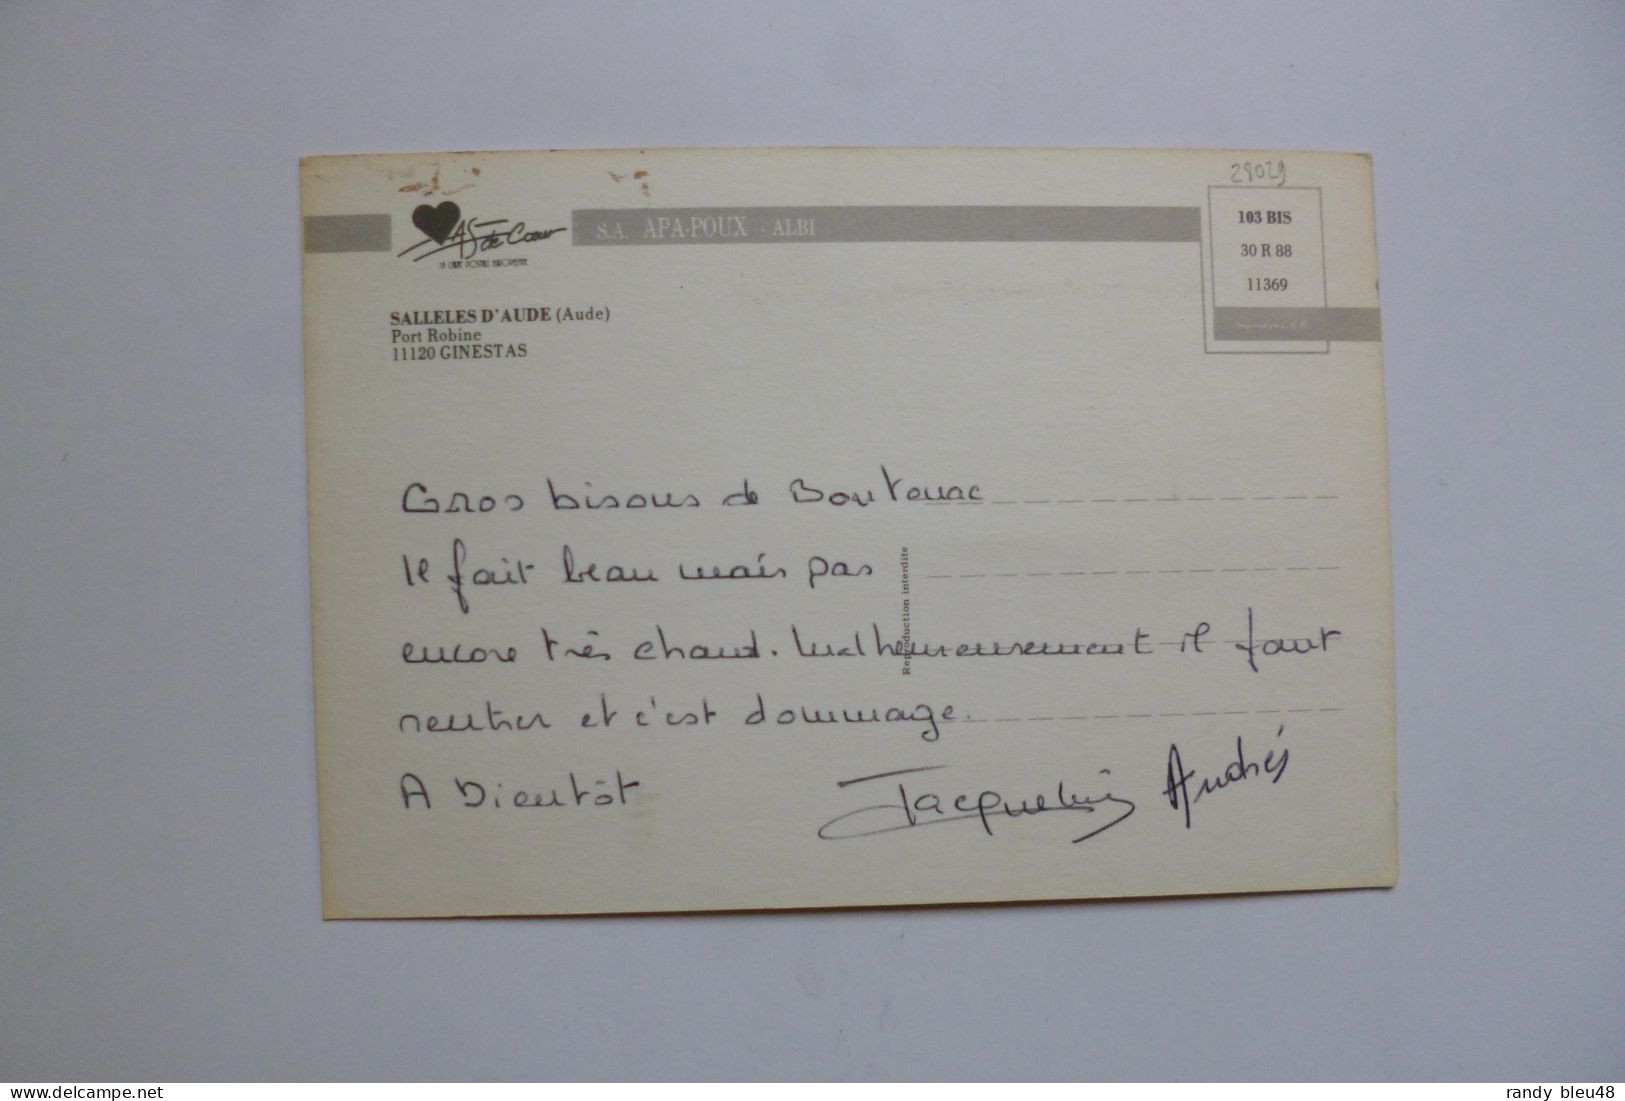 28029
AS de Cœur
LA CARTE POSTALE EUROPEENNE
S.A. APA-POUX - ALBI
103 BIS
30 R 88
11369
SALLELES D'AUDE (Aude)
Port Robine
11120 GINESTAS
Gros bisous de Boutenac
Il fait beau mais pas
encore très chaud. Malheureusement il faut
rentrer et c'est dommage.
A Bientôt
Jacqueline Andrés
Reproduction interdite
randy bleu48